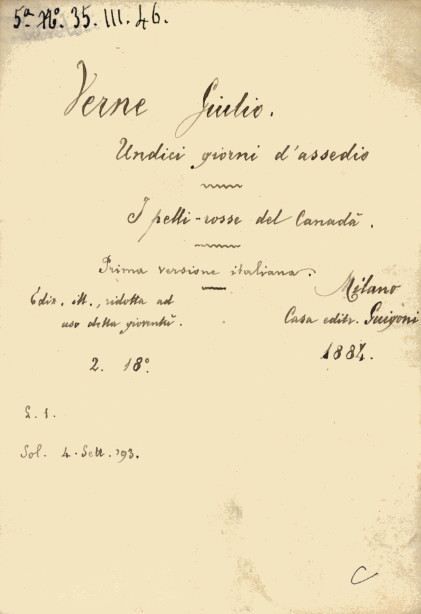 5ª Nº. 35. III. 46.
Verne Giulio.
Undici giorni d'assedio
I pelli-rosse del Canadà.
Prima versione italiana.
Ediz. ill., ridotta ad
uso della gioventù.
Milano
Casa editr. Guigoni
1884.
2. 18º.
L. 1.
Sol. 4. Sett. '93.
C